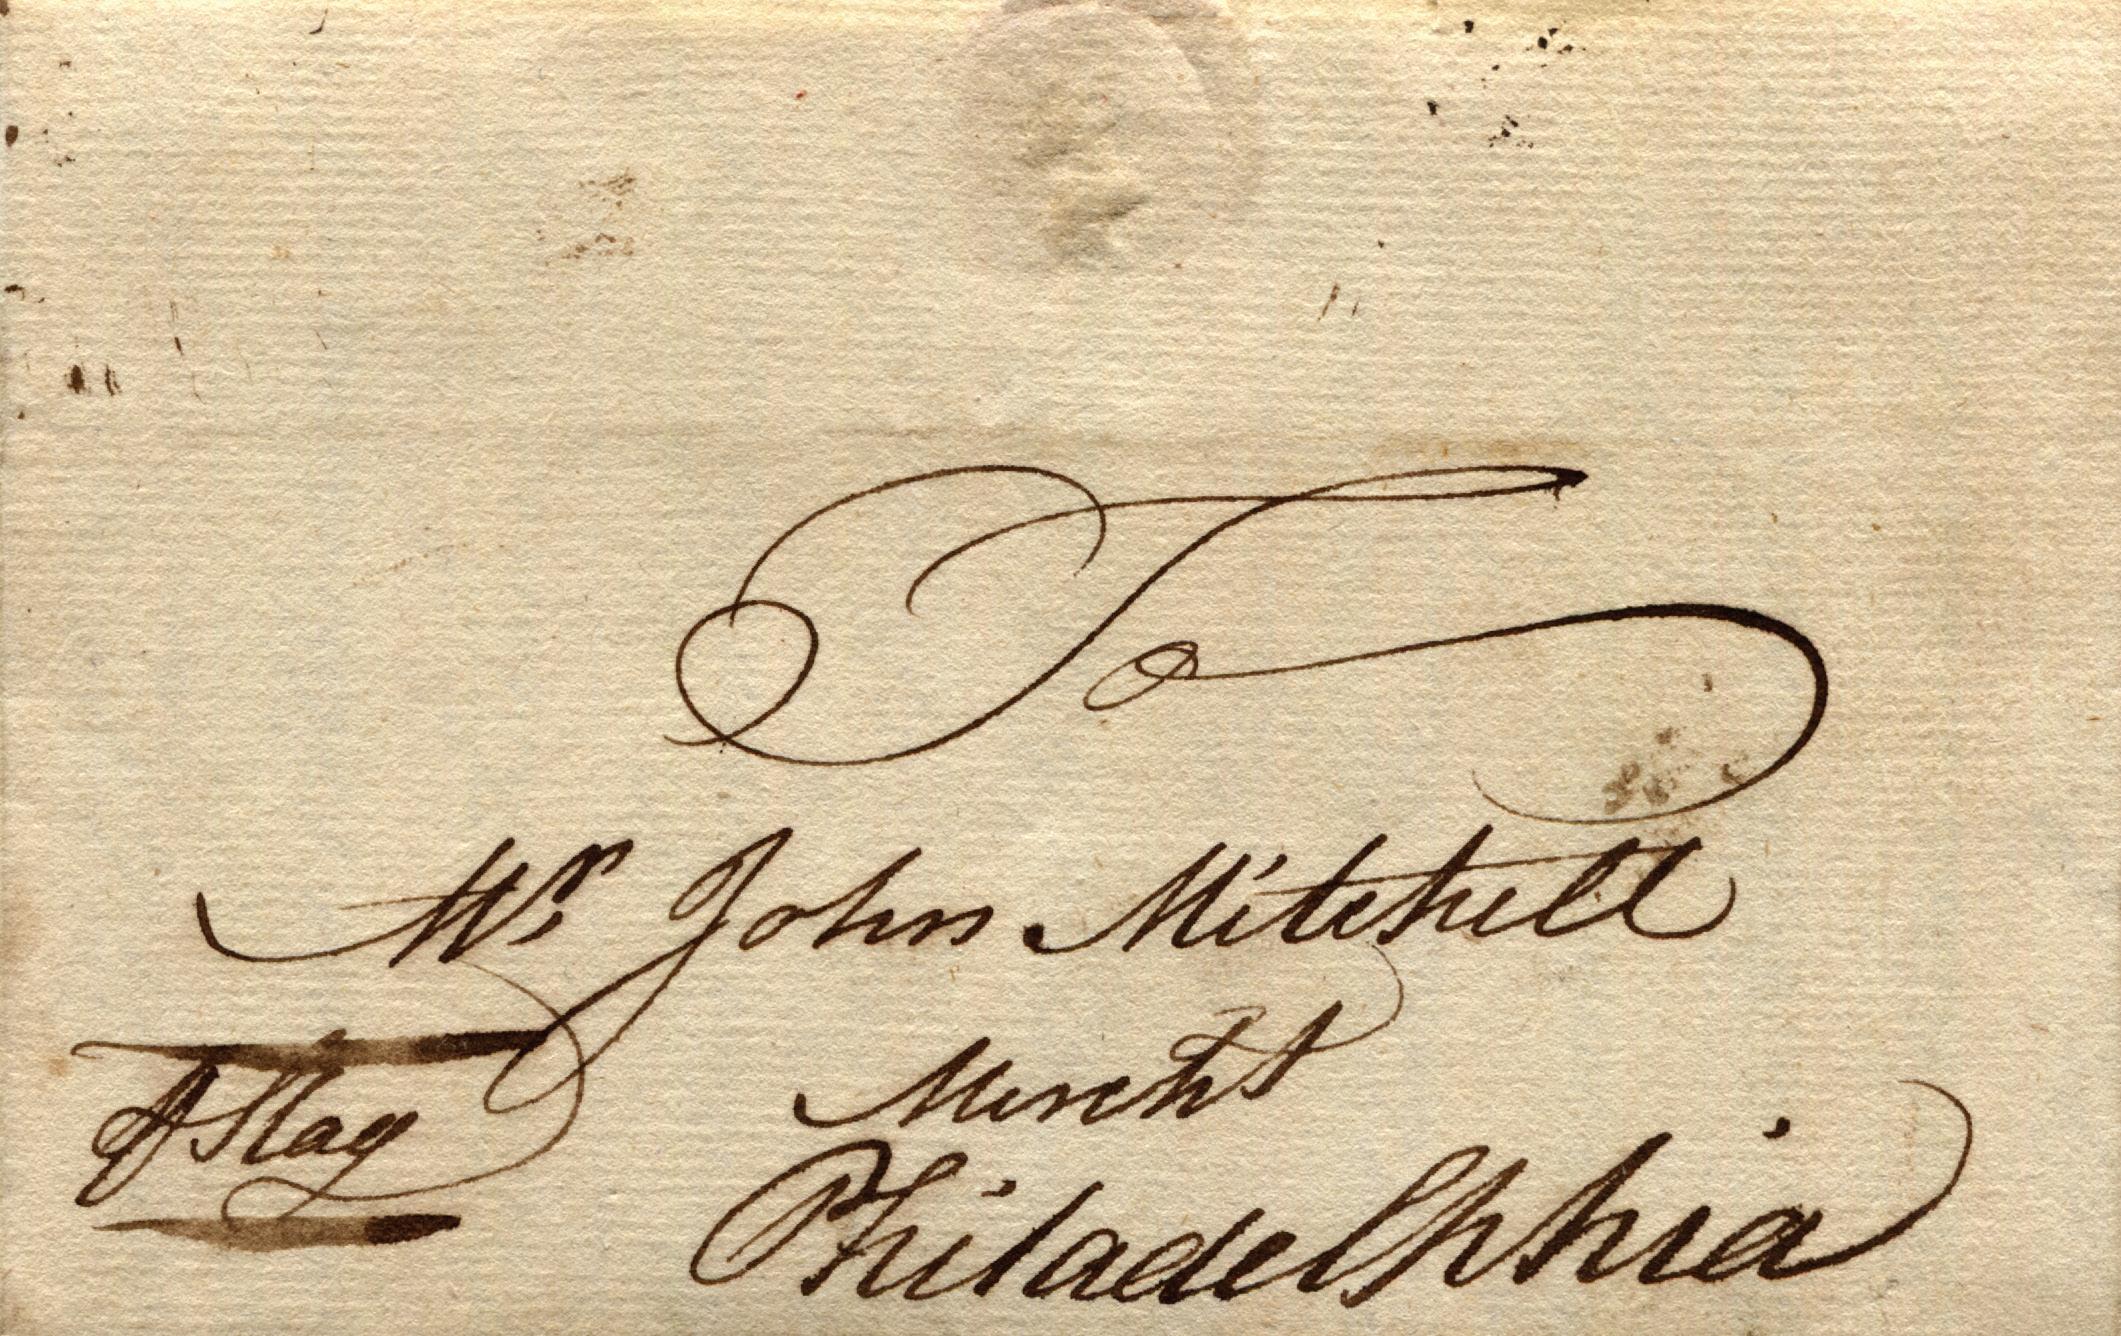 To
Mr John Mitchell
Mercht
Philadelphia